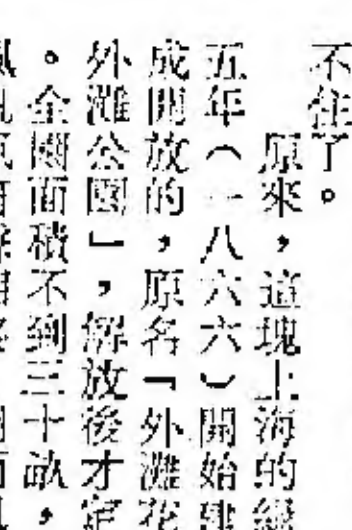 不住了。
原來，這塊上海的綠
五年（一八六六）開始建
成開放的，原名「外灘花
外灘公園」，解放後才定
。全園面積不到三十畝，